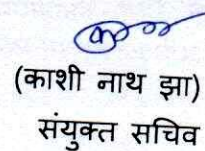 (काशी नाथ झा)
संयुक्त सचिव